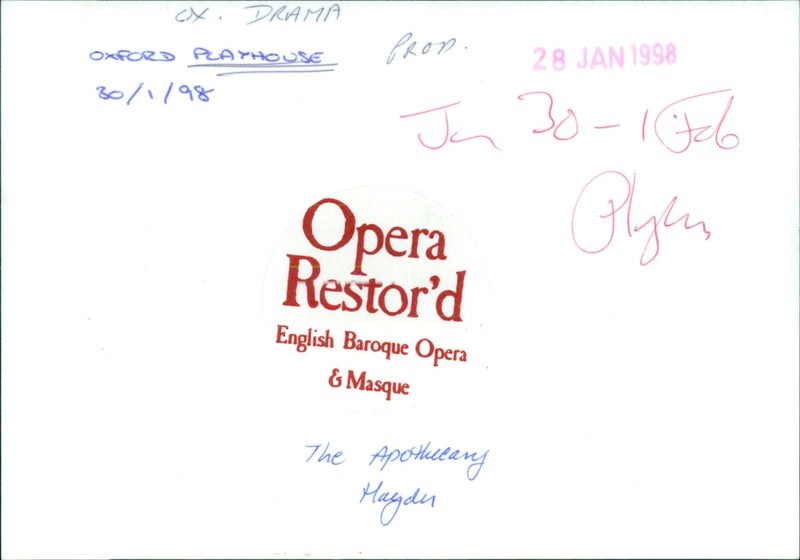 OX. DRAMA
OXFORD PLAYHOUSE
PROD.
28 JAN 1998
30/1/98
Jan 30 - 1 Feb
Opera
Restor'd
English Baroque Opera
& Masque
The Apothecary
Haydn